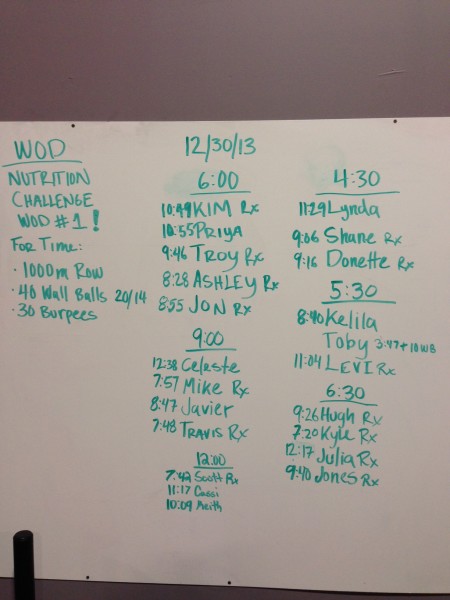 WOD
NUTRITION
CHALLENGE
WOD #1!
For Time:
· 1000m Row
· 40 Wall Balls 20/14
· 30 Burpees
12/30/13
6:00
10:49 KIM Rx
10:55 PRIYA
9:46 TROY Rx
8:28 ASHLEY Rx
8:55 JON Rx
9:00
12:38 Celeste
7:57 Mike Rx
8:47 Javier
7:48 TRAVIS Rx
12:00
7:42 Scott Rx
11:17 Cassi
10:09 Keith
4:30
11:29 Lynda
9:06 Shane Rx
9:16 Donette Rx
5:30
8:40 Kelila
Toby 3:47+10WB
11:04 LEVI Rx
6:30
9:26 Hugh Rx
7:20 Kyle Rx
12:17 Julia Rx
9:40 Jones Rx